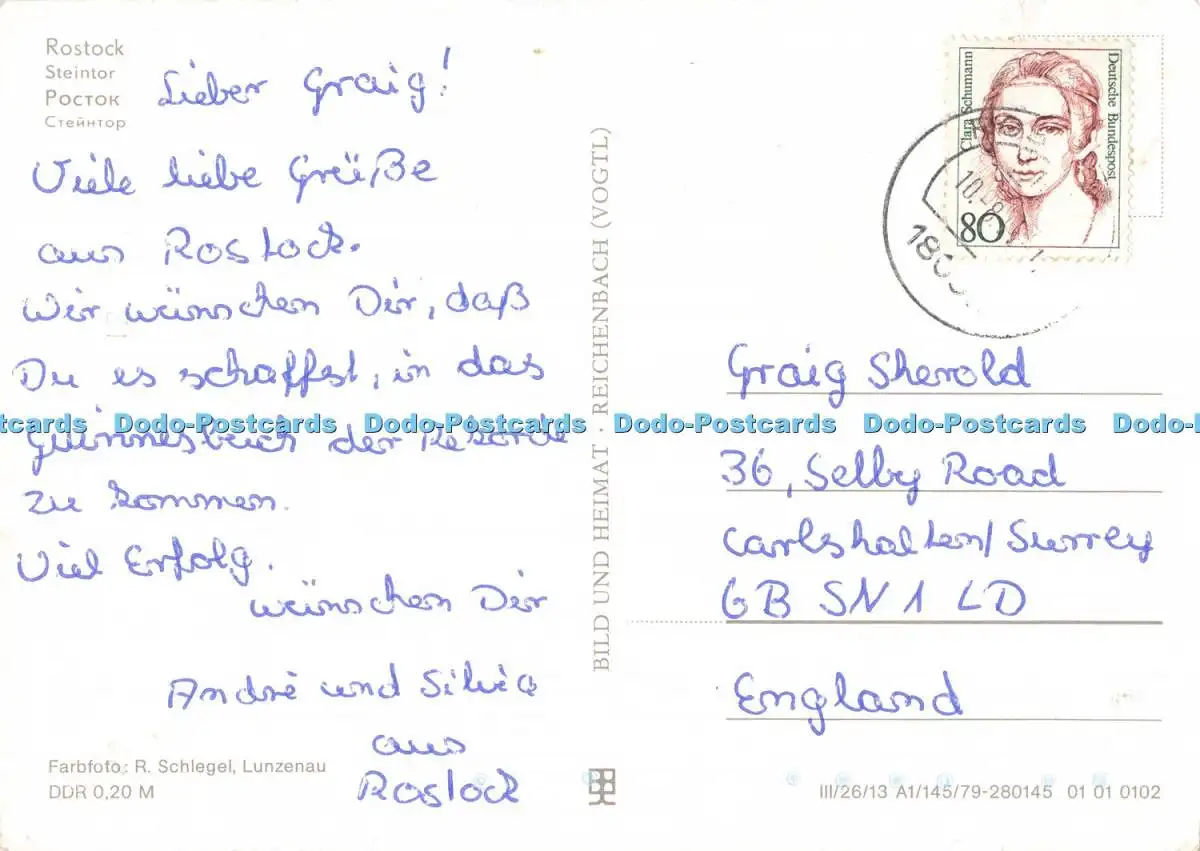 Rostock
Steintor
Росток
Стейнтор
Lieber Graig!
Viele liebe Grüße
aus Rostock.
Wir wünschen Dir, daß
Du es schaffst, in das
Guinnesbuch der Rekorde
zu kommen.
Viel Erfolg.
wünschen Dir
André und Silvia
aus
Rostock
Farbfoto: R. Schlegel, Lunzenau
DDR 0,20 M
BILD UND HEIMAT · REICHENBACH (VOGTL)
Clara Schumann
Deutsche Bundespost
80
Graig Sherold
36, Selby Road
Carlshalten/Surrey
GB SN1 LD
England
III/26/13 A1/145/79-280145 01 01 0102
Dodo-Postcards Dodo-Postcards Dodo-Postcards Dodo-Postcards